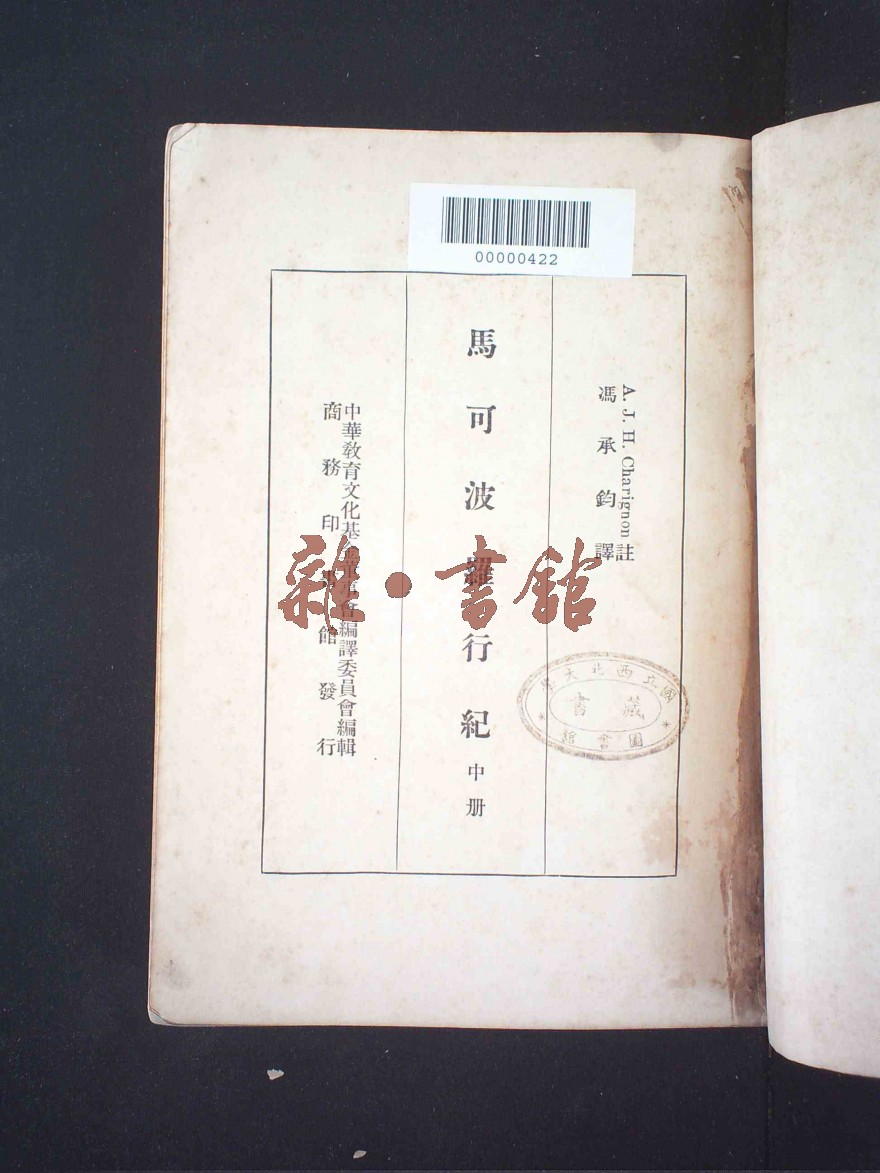 00000422
A. J. H. Charignon 註
馮承鈞譯
馬可波羅行紀 中册
中華教育文化基金董事會編譯委員會編輯
商務印書館發行
雜·書館
國立西北大學
圖書館
藏書